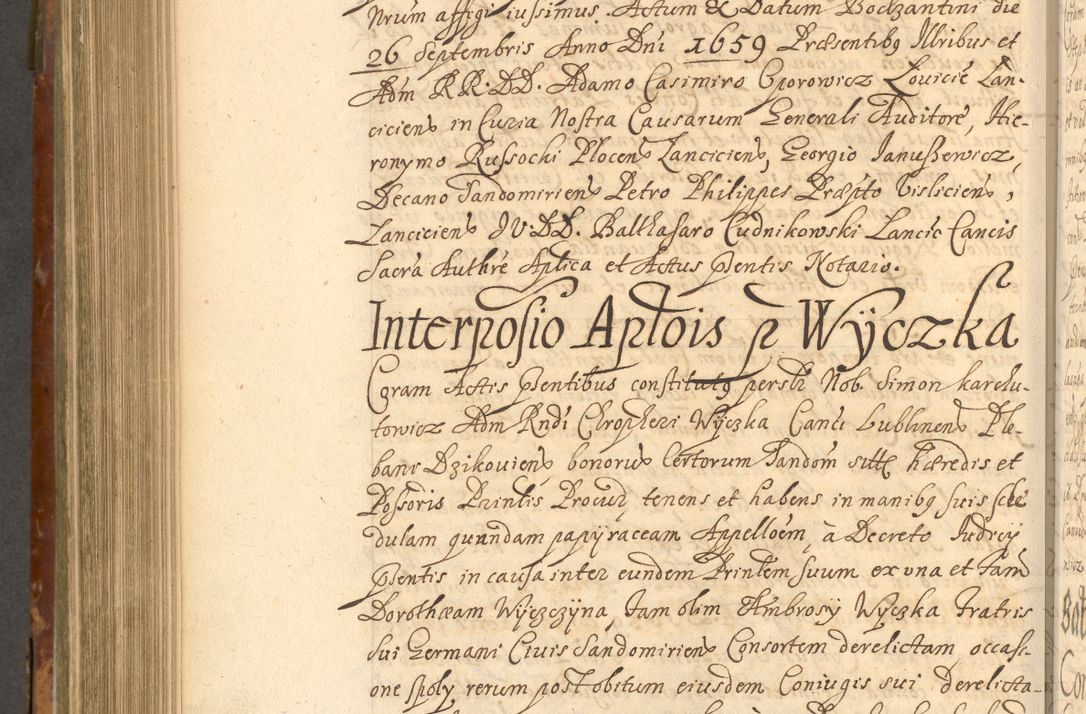 Nrum affigi iussimus. Actum & Datum Bodzantini die
26 Septembris Anno Dni 1659 Præsentibg Illribus et
Adm RR. DD. Adamo Casimiro Oporowicz Lovicie Lan-
ciciens in Curia Nostra Causarum Generali Auditore, Hie-
ronymo Russocki Plocens Lanciciens, Georgio Januszewicz,
Decano Sandomiriens Petro Philippes Præpto Visliciens,
Lanciciens JV. DD. Balthasaro Cudnikowski Lancic Cancis
Sacra Authre Aplica et Actus Pentis Notario.
Interposio Aptois p Wÿczka
Coram Actis Pentibus constitutg persLr Nob. Simon Karchu-
towicz Adm Rndi Chropheri Wÿczka Canci Lublinens Ple-
bani Dzikoviens bonorus Certorum Sandom sitt hæredis et
Possoris Printis Procur tenens et habens in manibg suis sche
dulam quandam papÿraceam Appelloem, à Decreto Judicÿ
Psentis in causa inter eundem Printem suum ex una et fam
Dorothæam Wÿczczÿna, fam olim Ambrosÿ Wÿczka fratris
sui Germani Civis Sandomiriens Consortem derelictam occasi-
one spoly rerum post obitum eiusdem Coniugis sui derelicta-